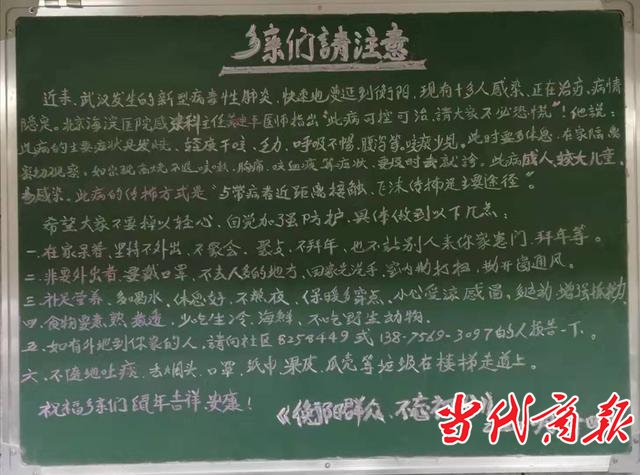 乡亲们請注意
近来，武汉发生的新型病毒性肺炎，快速地蔓延到衡阳，现有十多人感染，正在治疗，病情
隐定。北京海淀医院感染科主任医师指出"此病可控可治，請大家不必恐慌"！他説：
此病的主要症状是发烧、轻度干咳、乏力、呼吸不畅、腹泻等，咳痰少见。此时要多休息，在家隔离
密切观察，如出现高烧不退、咳嗽、胸痛、咳血痰等症状，要及时去就診。此病成人、较大儿童，
易感染。此病的传播方式是"与带病者近距离接触、飞沫传播是主要途径"。
希望大家不要掉以轻心，自觉加强防护，具体做到以下几点：
一、在家呆着，坚持不外出，不聚会、聚歺、不拜年，也不让别人来你家串门、拜年等。
二、非要外出者，要戴口罩，不去人多的地方，回家先洗手，室内勤打扫，勤开窗通风。
三、补足营养，多喝水，休息好，不熬夜，保暖多穿点，小心受凉感冒，多运动，增强抵抗力
四、食物要煮熟、煮透，少吃生冷、海鲜、不吃野生动物。
五、如有外地到你家的人，請向社区8258449或138-7569-3097的人报告一下。
六、不随地吐痰，丢烟头、口罩、纸巾、果皮、瓜壳等垃圾在楼梯走道上。
祝福乡亲们鼠年吉祥、安康！
《衡阳群众，不忘
当代商报